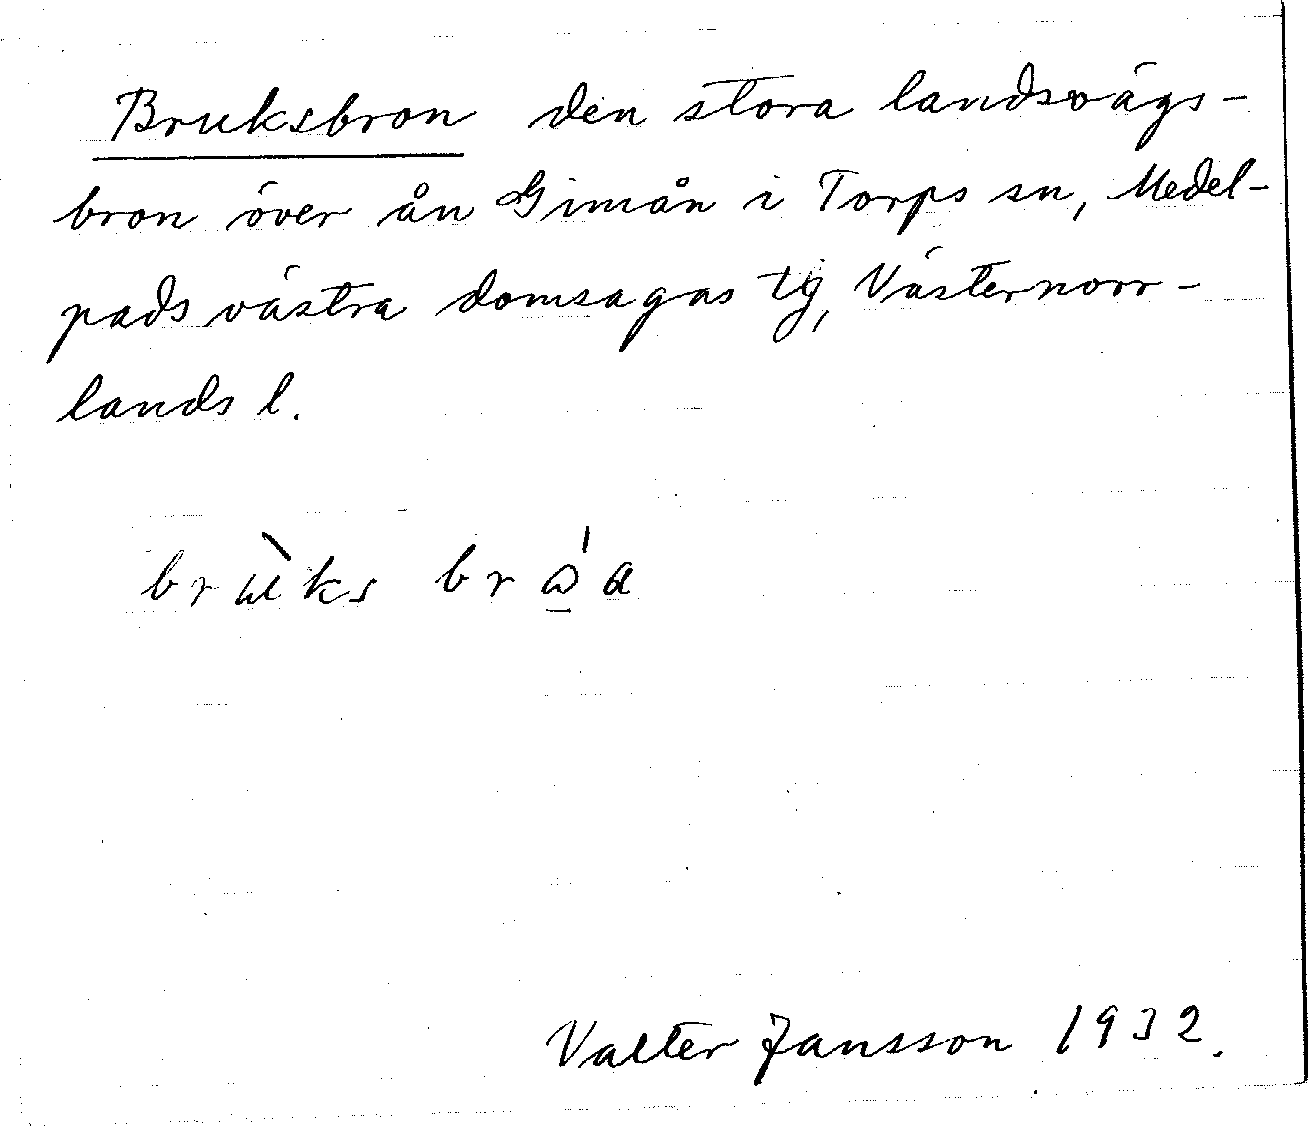 Bruksbron den stora landsvägs-
bron över ån Gimån i Torps sn, Medel-
pads västra domsagas tg, Västernorr-
lands l.
brùks brɷ̲́a
Valter Jansson 1932.